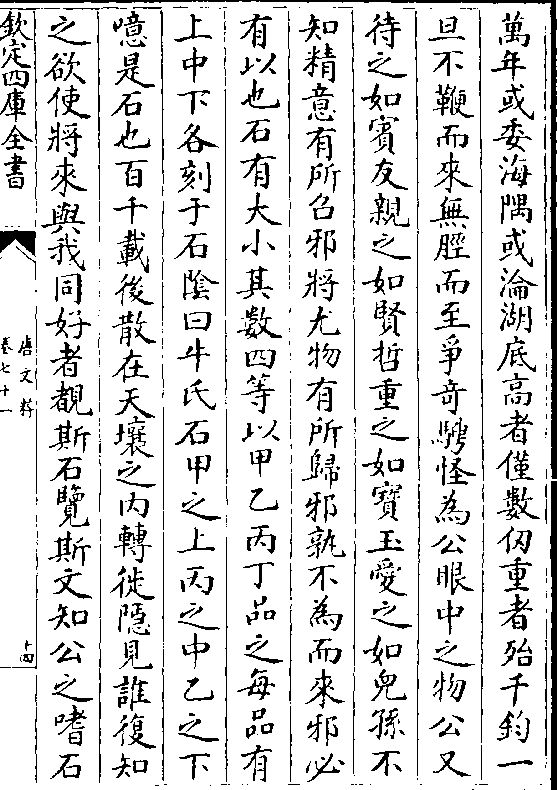 萬年或委海隅或淪湖底高者僅數仞重者殆千鈞一
旦不鞭而來無脛而至爭竒騁怪為公眼中之物公又
待之如賓友親之如賢哲重之如寶玉愛之如兒孫不
知精意有所召邪將尤物有所歸邪孰不為而來邪必
有以也石有大小其數四等以甲乙丙丁品之每品有
上中下各刻于石隂曰牛氏石甲之上丙之中乙之下
噫是石也百千載後散在天壤之内轉徙隱見誰復知
之欲使將來與我同好者覩斯石覽斯文知公之嗜石
欽定四庫全書
唐文粹
卷七十一
十四